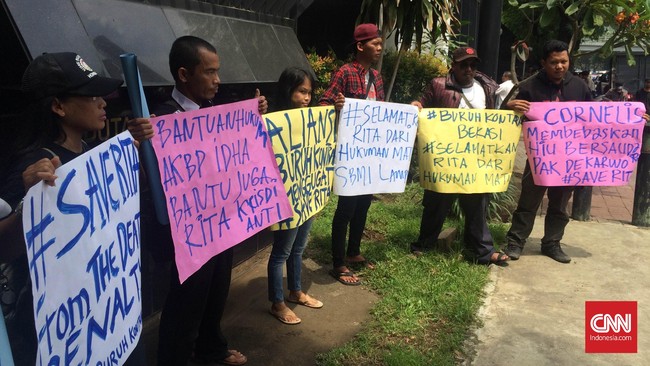 #SAVERITA
From THE DEATH
PENALTY
BURUH
BANTUAN HUKUM
AKBP IDHA
BANTU JUGA
RITA KRSDI
ANTI
ALIANSI
BURUH
SAVE RITA
#SELAMATKAN
RITA DARI
HUKUMAN MATI
SBMI
#BURUH KONTRAK
BEKASI
#SELAMATKAN
RITA DARI
HUKUMAN MATI
CORNELIS
Membebaskan
HIU BERSAUDARA
PAK DEKARWO
#SAVE RITA
CNN
Indonesia.com